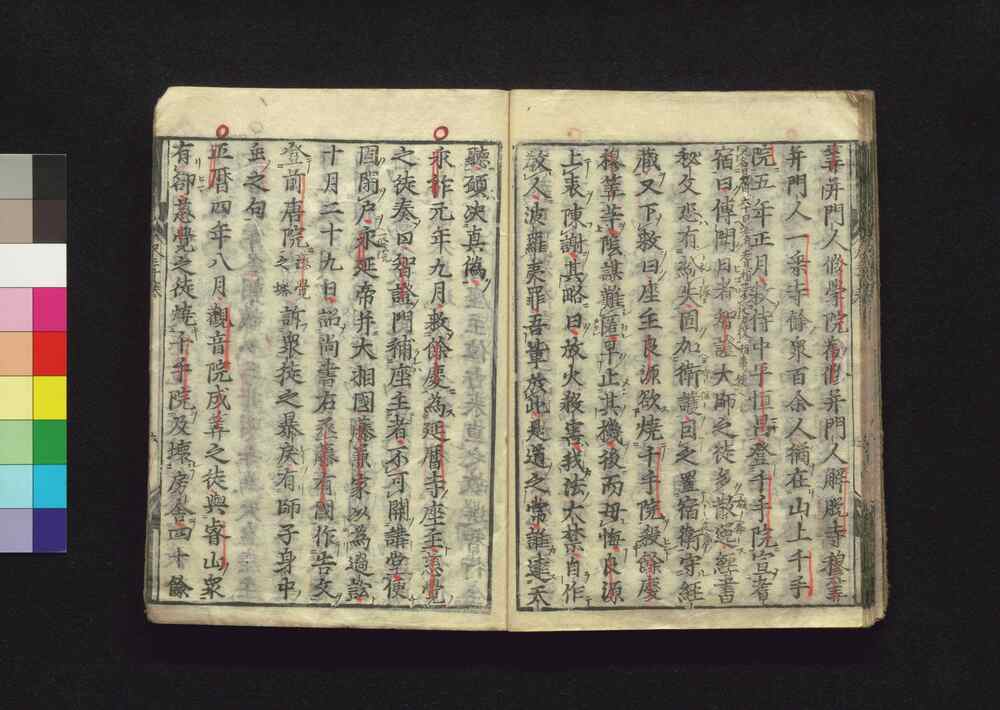 筭并門人修學院勸修并門人解脱寺穆筭
并門人一乘寺餘衆百余人猶在山上千手
院五年正月敕侍中平恒昌登千手院宣耆
宿曰傳聞日者智證大師之徒多散絶經書
秘文恐有紛失因加衛護自之置宿衛守經
藏又下敕曰座主良源欲燒千手院殺餘慶
穆筭等陰謀難匿早止其機後丙毋悔良源
上表陳謝其略曰放火殺害我法大禁自作
教人波羅夷罪吾輩於此是道之常誰達天
聽願決真僞
永祚元年九月敕餘慶為延曆寺座主慈覺
之徒奏曰智證門補座主者不可開講堂便
固閉戸永延帝并大相國藤兼家以為過訟
十月二十九日詔尚書右丞藤有國作告文
登前唐院慈覺之塔訴衆徒之暴戾有師子身中
虫之句
正曆四年八月觀音院成筭之徒與睿山衆
有郤慈覺之徒燒千手院及壞房舍四十餘